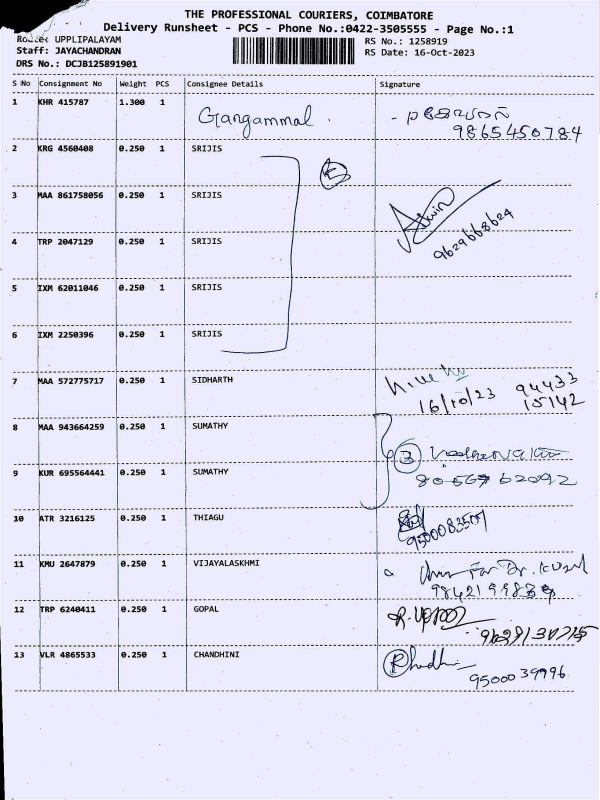 THE PROFESSIONAL COURIERS, COIMBATORE
Delivery Runsheet - PCS - Phone No.:0422-3505555 - Page No.:1
Route: UPPLIPALAYAM
RS No.: 1258919
Staff: JAYACHANDRAN
RS Date: 16-Oct-2023
DRS No.: DCJB125891901
S No Consignment No Weight PCS Consignee Details Signature
1 KHR 415787 1.300 1 Gangammal.
9865450784
2 KRG 4560408 0.250 1 SRIJIS
5
3 MAA 861758056 0.250 1 SRIJIS
Aswin
9629668624
4 TRP 2047129 0.250 1 SRIJIS
5 IXM 62011046 0.250 1 SRIJIS
6 IXM 2250396 0.250 1 SRIJIS
7 MAA 572775717 0.250 1 SIDHARTH
16/10/23 94433
15142
8 MAA 943664259 0.250 1 SUMATHY
3
9 KUR 695564441 0.250 1 SUMATHY
10 ATR 3216125 0.250 1 THIAGU
11 KMU 2647879 0.250 1 VIJAYALASKHMI
12 TRP 6240411 0.250 1 GOPAL
13 VLR 4865533 0.250 1 CHANDHINI
9500039996